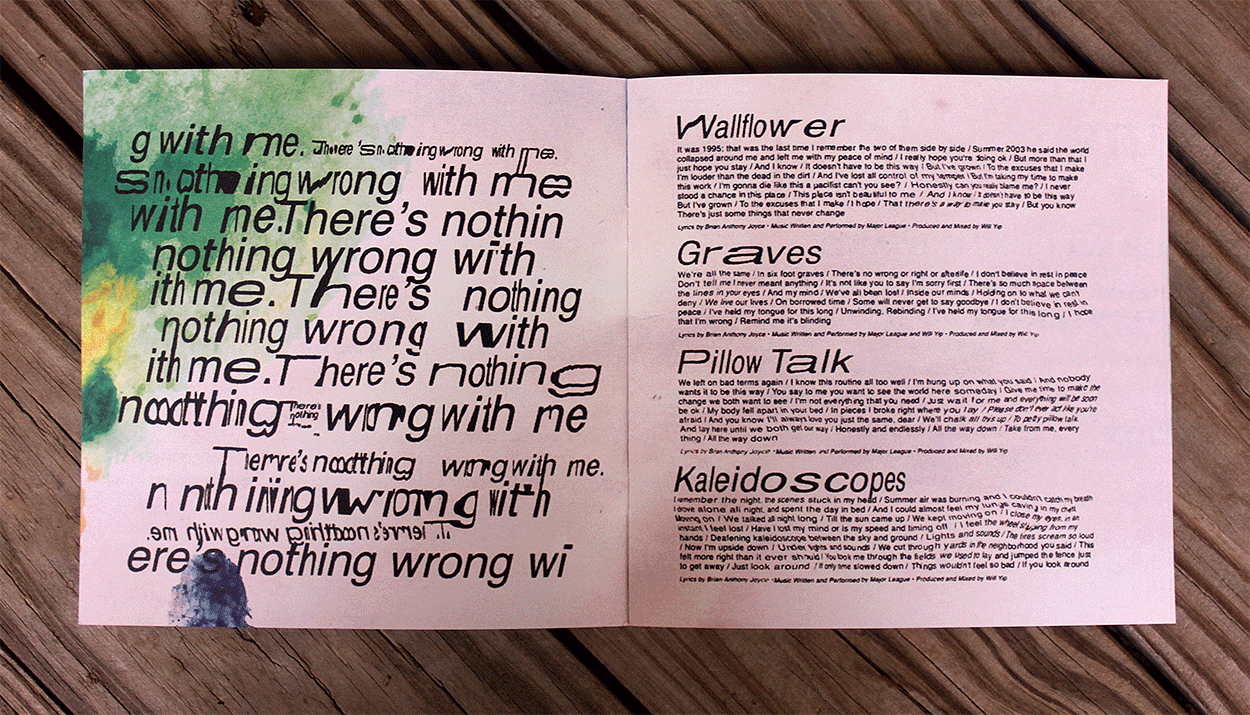 g with me. There's n othe ing wrong with me.
s n. othe ing wrong with me
with me.There's nothin
nothing wrong with
ith me.There's nothing
nothing wrong with
ith me.There's nothing
noodtthing There's nothing wrong with me
Tierrre's noodtthing wrong with me.
n nth ining wrong with
T. ierrre's noodtthing wrong with me.
ere's nothing wrong wi
Wallflower
It was 1995; that was the last time I remember the two of them side by side / Summer 2003 he said the world
collapsed around me and left me with my peace of mind / I really hope you're doing ok / But more than that I
just hope you stay / And I know / It doesn't have to be this way / But I've grown / To the excuses that I make
I'm louder than the dead in the dirt / And I've lost all control of my temper / But I'm taking my time to make
this work / I'm gonna die like this a pacifist can't you see? / Honestly can you really blame me? / I never
stood a chance in this place / This place isn't beautiful to me / And I know / It doesn't have to be this way
But I've grown / To the excuses that I make / I hope / That there's a way to make you stay / But you know
There's just some things that never change
Lyrics by Brian Anthony Joyce • Music Written and Performed by Major League • Produced and Mixed by Will Yip
Graves
We're all the same / In six foot graves / There's no wrong or right or afterlife / I don't believe in rest in peace
Don't tell me I never meant anything / It's not like you to say I'm sorry first / There's so much space between
the lines in your eyes / And my mind / We've all been lost / Inside our minds / Holding on to what we can't
deny / We live our lives / On borrowed time / Some will never get to say goodbye / I don't believe in rest in
peace / I've held my tongue for this long / Unwinding, Rebinding / I've held my tongue for this long / I hope
that I'm wrong / Remind me it's blinding
Lyrics by Brian Anthony Joyce • Music Written and Performed by Major League and Will Yip • Produced and Mixed by Will Yip
Pillow Talk
We left on bad terms again / I know this routine all too well / I'm hung up on what you said / And nobody
wants it to be this way / You say to me you want to see the world here someday / Give me time to make the
change we both want to see / I'm not everything that you need / Just wait for me and everything will be soon
be ok / My body fell apart in your bed / In pieces I broke right where you lay / Please don't ever act like you're
afraid / And you know I'll always love you just the same, dear / We'll chalk all this up / To petty pillow talk
And lay here until we both get our way / Honestly and endlessly / All the way down / Take from me, every
thing / All the way down
Lyrics by Brian Anthony Joyce • Music Written and Performed by Major League • Produced and Mixed by Will Yip
Kaleidoscopes
I remember the night, the scenes stuck in my head / Summer air was burning and I couldn't catch my breath
I drove alone all night, and spent the day in bed / And I could almost feel my lungs caving in my chest
Moving on / We talked all night long / Till the sun came up / We kept moving on / I close my eyes, in an
instant I feel lost / Have I lost my mind or is my speed and timing off / I feel the wheel slipping from my
hands / Deafening kaleidoscope between the sky and ground / Lights and sounds / The tires scream so loud
/ Now I'm upside down / Under lights and sounds / We cut through yards in the neighborhood you said / This
felt more right than it ever should / You took me through the fields we used to lay and jumped the fence just
to get away / Just look around / If only time slowed down / Things wouldn't feel so bad / If you look around
Lyrics by Brian Anthony Joyce • Music Written and Performed by Major League • Produced and Mixed by Will Yip